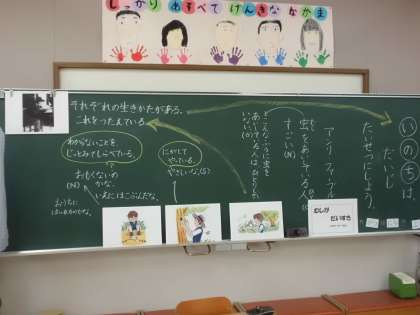 しっかり あそべて げんきな なかま
いのちは、
だいじ
たいせつにしよう。
アンリ ファーブル
虫をあいしている人
すごい(N)
こんなふうに虫を
あいしている人はひとりも
いない(O)
それぞれの生きかたがある。
これをつたえている。
わからないことを
じっとみてしらべている。
おもくないの
かな。
(N)
いえにはこぶんだな。
にがして
やっている。
やさしいな。(S)
むしが
だいすき